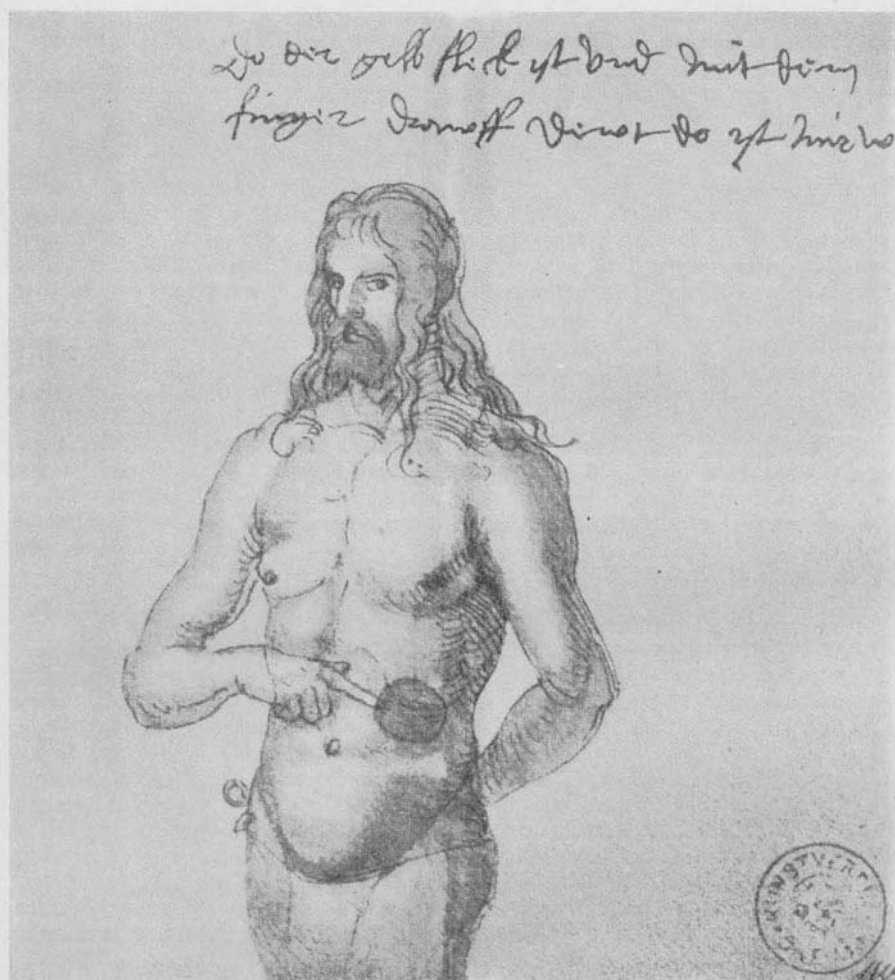 Do der gelb fleck ist vnd mit dem
finger drawff dewt do ist mir w
KUNSTVEREIN